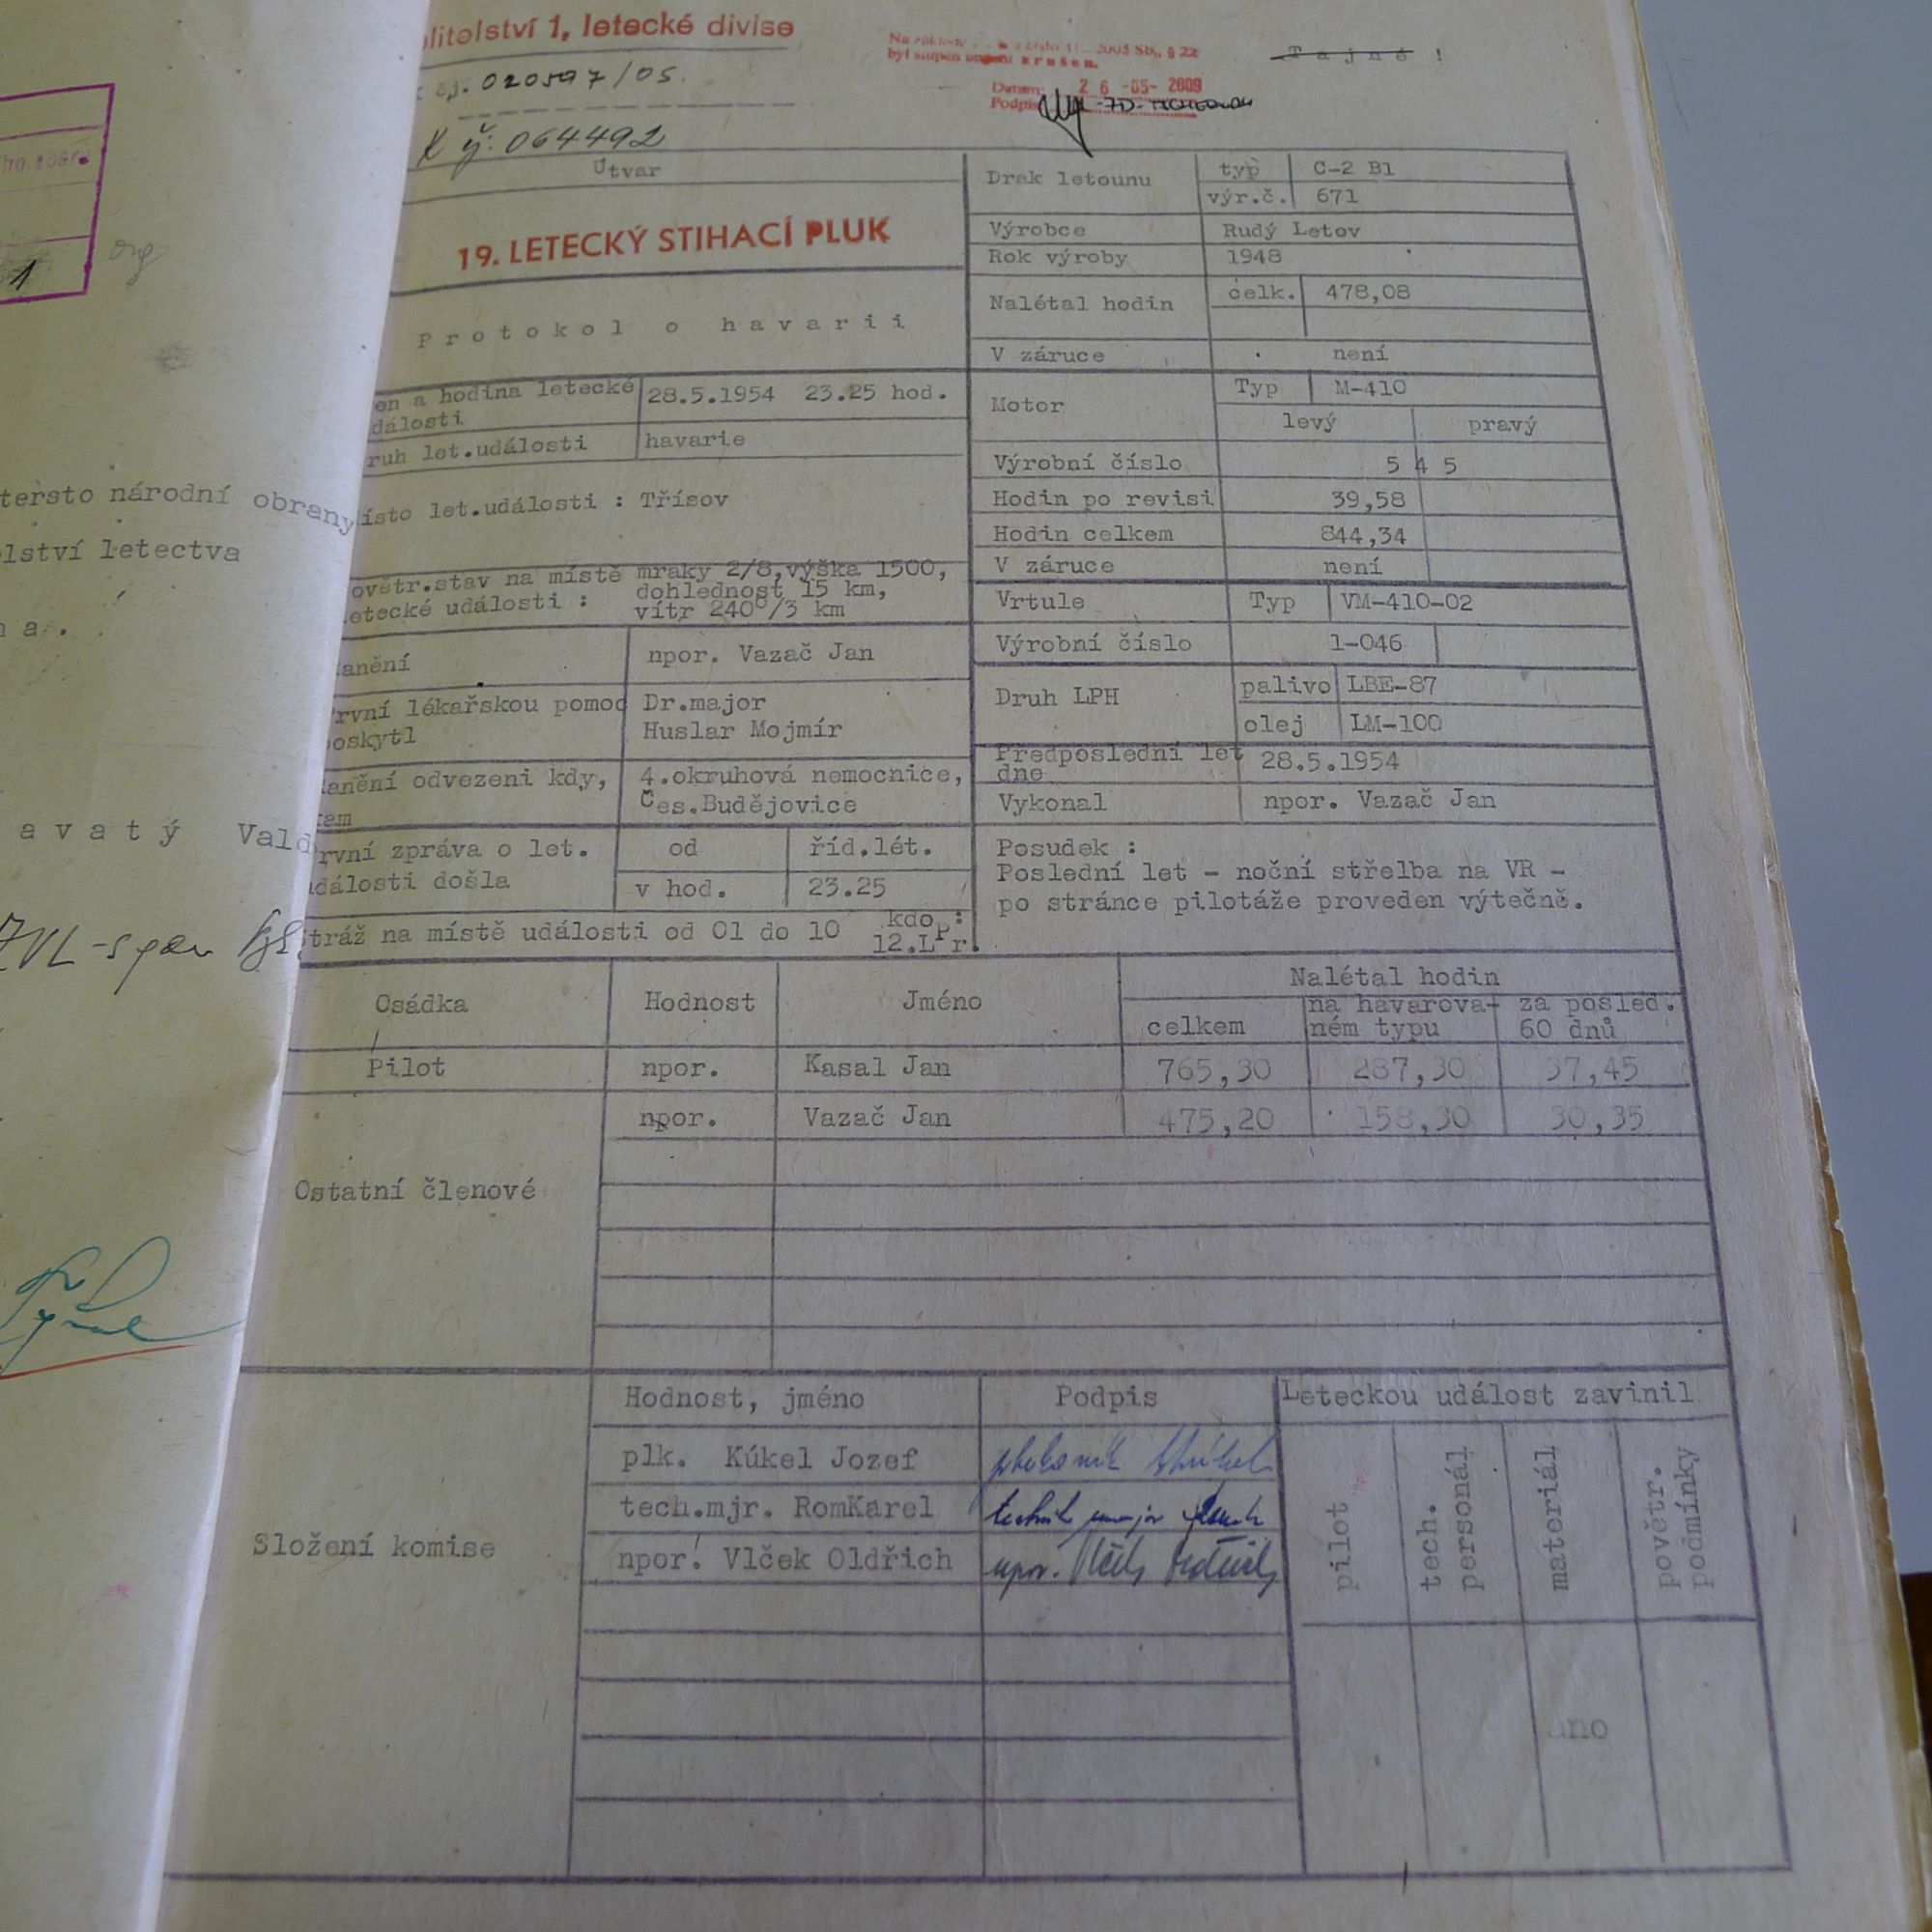 velitelství 1. letecké divise
čj. 020597/05.
K čj: 064492
byl stupeň utajení zrušen.
Datum: 26 -05- 2009
Podpis
Tajné !
Útvar
19. LETECKÝ STIHACÍ PLUK
Protokol o havarii
en a hodina letecké
dálosti
28.5.1954 23.25 hod.
ruh let.události
havarie
ísto let.události : Třísov
ovětr.stav na místě
etecké události :
mraky 2/8,výška 1500,
dohlednost 15 km,
vítr 240°/3 km
anění
npor. Vazač Jan
rvní lékařskou pomoc
oskytl
Dr.major
Huslar Mojmír
anění odvezeni kdy,
am
4.okruhová nemocnice,
Čes.Budějovice
rvní zpráva o let.
dálosti došla
od
říd.lét.
v hod.
23.25
tráž na místě události od 01 do 10 kdo :
12.LPr.
Drak letounu
typ C-2 B1
výr.č. 671
Výrobce Rudý Letov
Rok výroby 1948
Nalétal hodin celk. 478,08
V záruce není
Motor Typ M-410
levý pravý
Výrobní číslo 5 4 5
Hodin po revisi 39,58
Hodin celkem 844,34
V záruce není
Vrtule Typ VM-410-02
Výrobní číslo 1-046
Druh LPH
palivo LBE-87
olej LM-100
Předposlední let
dne
28.5.1954
Vykonal npor. Vazač Jan
Posudek :
Poslední let - noční střelba na VR -
po stránce pilotáže proveden výtečně.
Osádka Hodnost Jméno
Nalétal hodin
celkem
na havarova-
ném typu
za posled.
60 dnů
Pilot npor. Kasal Jan 765,30 287,30 37,45
npor. Vazač Jan 475,20 158,30 30,35
Ostatní členové
Složení komise
Hodnost, jméno Podpis
plk. Kúkel Jozef
tech.mjr. RomKarel
npor. Vlček Oldřich npor.
Leteckou událost zavinil
pilot
tech.
personál
materiál
povětr.
podmínky
ano
ho sboru
1
org
tersto národní obrany
lství letectva
na.
avatý Vald